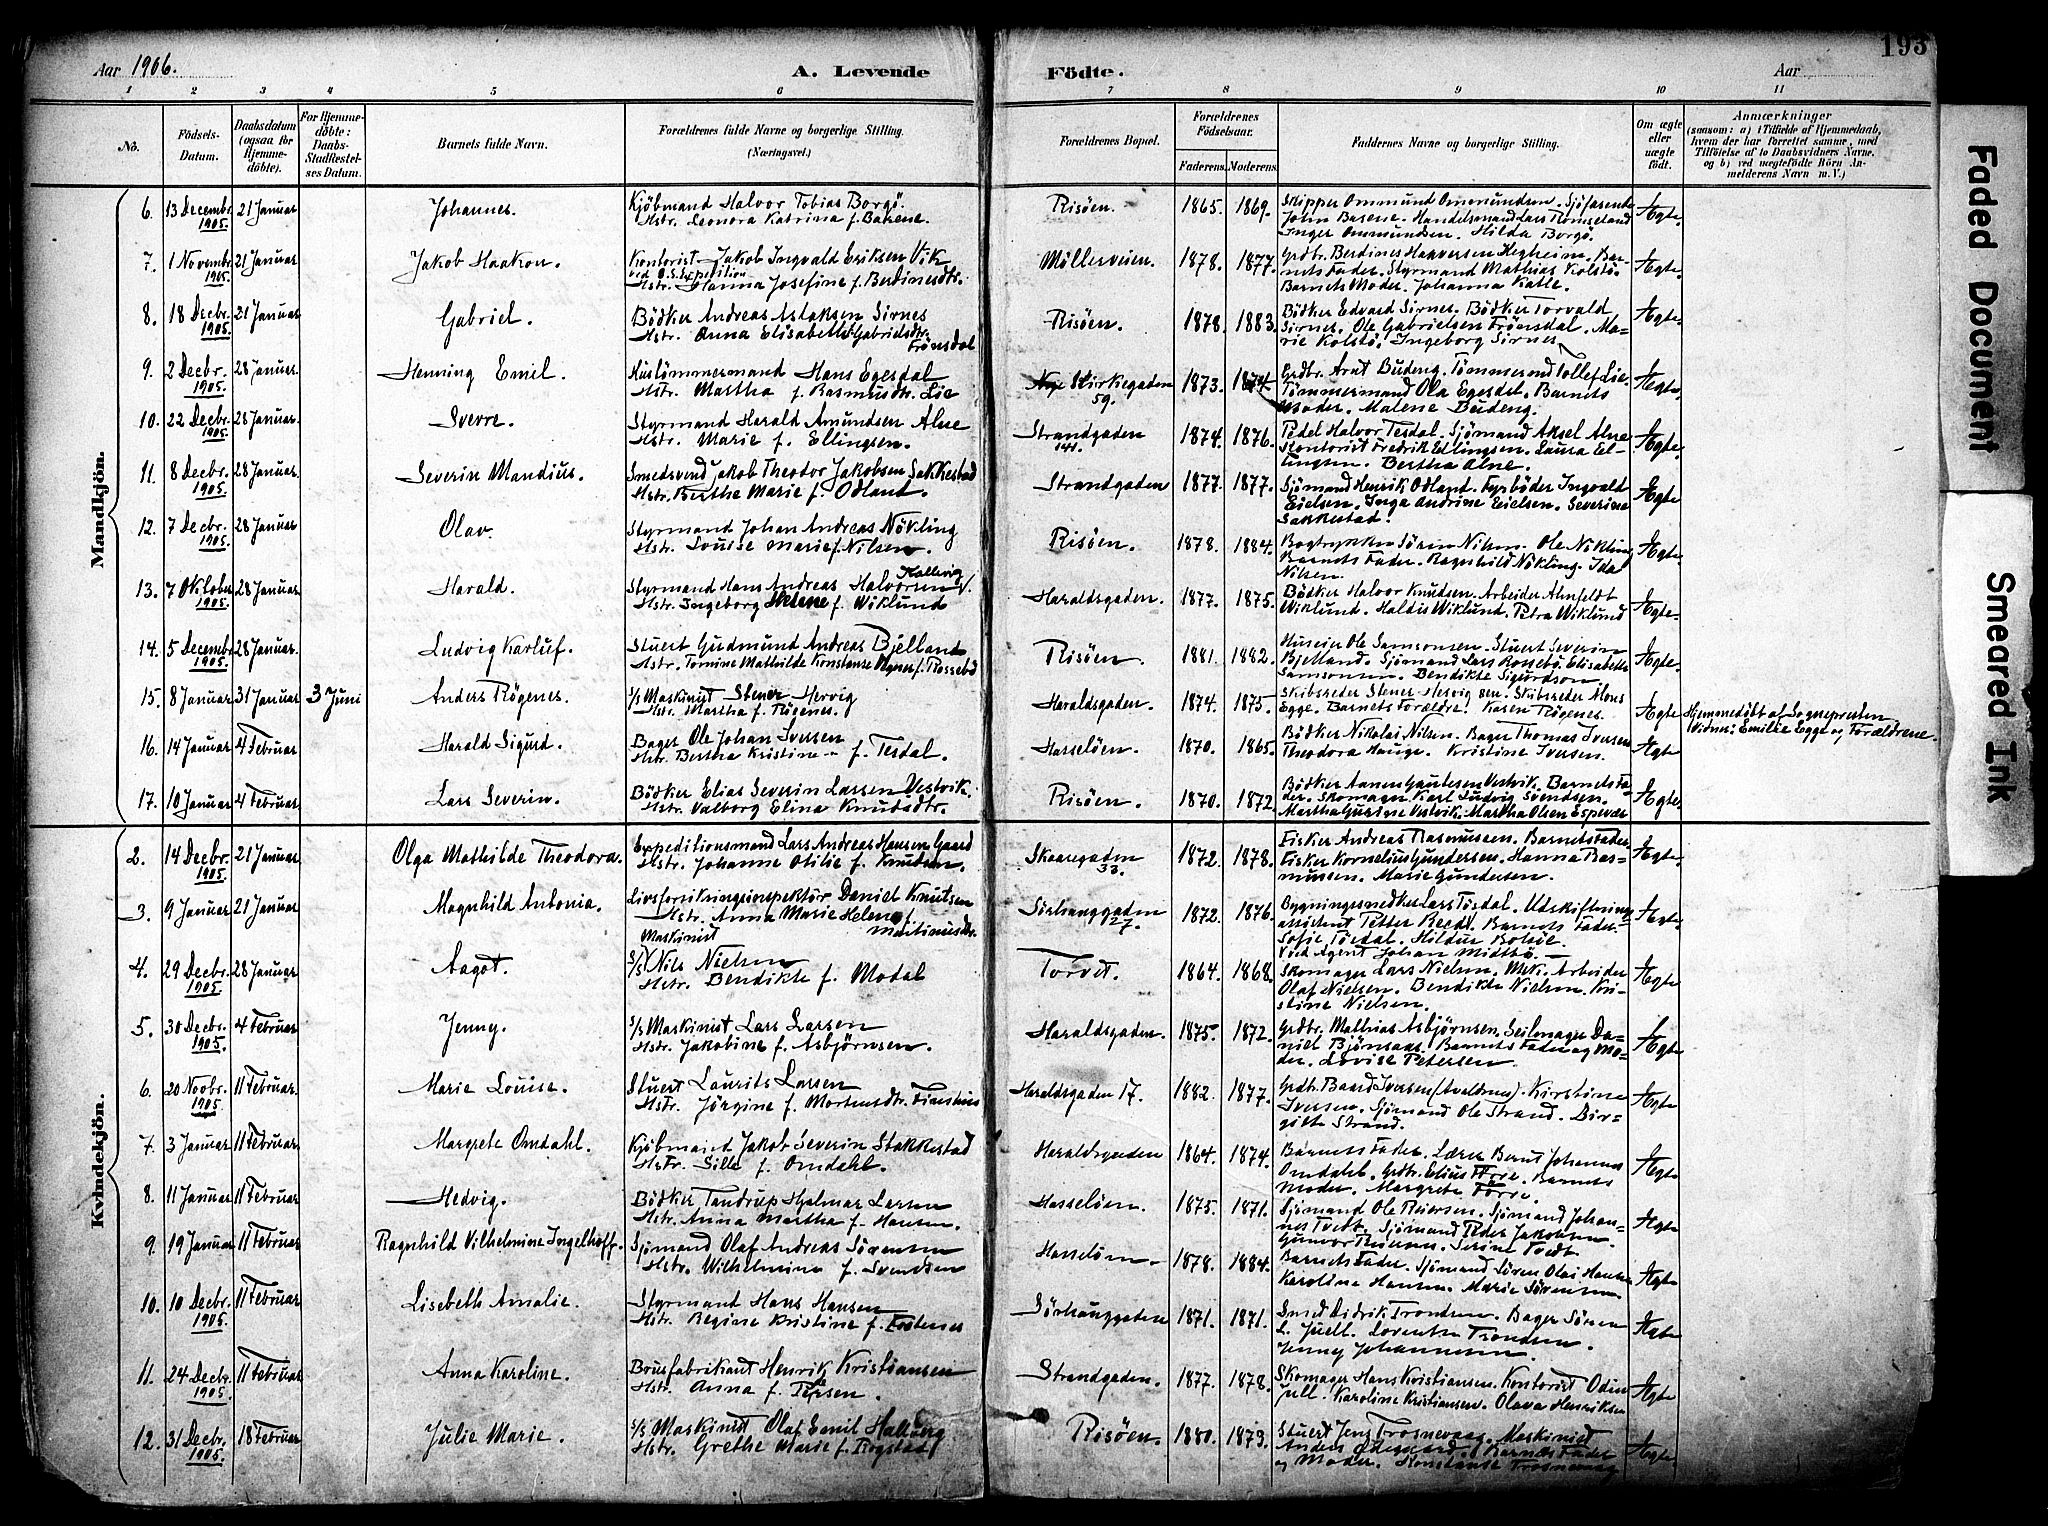 193
Aar 1906.
A. Levende Födte.
Aar
1 2 3 4 5 6 7 8 9 10 11
No.
Födsels-Datum.
Daabsdatum (ogsaa for Hjemme-döbte).
For Hjemme-döbte: Daabs-Stadfæstel-ses Datum.
Barnets fulde Navn.
Forældrenes fulde Navne og borgerlige Stilling. (Næringsvei.)
Forældrenes Bopæl.
Forældrenes Födselsaar.
Faderens. Moderens.
Faddernes Navne og borgerlige Stilling.
Om ægte eller uægte födt.
Anmærkninger
(saasom: a) i Tilfælde af Hjemmedaab, hvem der har forrettet samme, med Tilföielse af to Daabsvidners Navne, og b) ved uægtefödte Börn An-melderens Navn m. V.)
Mandkjön.
6. 13 Decembr. 1905. 21 Januar Johannes.
Kjöbmand Halvor Tobias Borgö.
Hstr. Leonora Katrina f. Basene.
Risöen. 1865. 1869.
Skipper Ommund Ommundsen. Sjöfarende
John Basene. Handelsmand Lars Römseland
Inger Ommundsen. Hilda Borgö. Ægte.
7. 1 Novembr. 1905. 21 Januar Jakob Haakon.
Kontorist Jakob Ingvald Eriksen Vik
ved O.S. Expedition
Hstr. Hanna Josefine f. Berdinesdtr.
Möllerveien. 1878. 1877.
Grdbr. Berdines Haaversen Hegheim. Bar-
nets Fader. Styrmand Mathias Kolstö.
Barnets Moder. Johanna Kalle. Ægte.
8. 18 Decbr. 1905. 21 Januar Gabriel.
Bödker Andreas Aslaksen Sirnes
Hstr. Anna Elisabeth Gabrielsdtr.
Frönsdal
Risöen. 1878. 1883.
Bödker Edvard Sirnes. Bödker Torvald
Sirnes. Ole Gabrielsen Frönsdal. Ma-
rie Kolstö. Ingeborg Sirnes. Ægte.
9. 2 Decbr. 1905. 28 Januar Henning Emil.
Hustömmermand Hans Egesdal
Hstr. Martha f. Rasmusdtr. Lie
Nye Kirkegaden 59. 1873. 1874.
Grdbr. Arnt Budeng. Tömmermd Tollef Lie.
Tömmermand Ola Egesdal. Barnets
Moder. Malene Budeng. Ægte.
10. 22 Decbr. 1905. 28 Januar Sverre.
Styrmand Harald Amundsen Alne
Hstr. Marie f. Ellingsen.
Strandgaden 141. 1874. 1876.
Pedel Halvor Tesdal. Sjömand Aksel Alne
Kontorist Fredrik Ellingsen. Laura El-
lingsen. Bertha Alne. Ægte.
11. 8 Decbr. 1905. 28 Januar Severin Mandius.
Smedsvend Jakob Theodor Jakobsen Sakkestad
Hstr. Berthe Marie f. Odland.
Strandgaden 1877. 1877.
Sjömand Henrik Odland. Fyrböder Ingvald
Eielsen. Inga Andrine Eielsen. Severine
Sakkestad. Ægte
12. 7 Decbr. 1905. 28 Januar Olav.
Styrmand Johan Andreas Nökling
Hstr. Louise Marie f. Nilsen.
Risöen. 1878. 1884.
Bogtrykker Sören Nilsen. Ole Nökling
Barnets Fader. Ragnhild Nökling. Ida
Nilsen. Ægte.
13. 7 Oktober 1905. 28 Januar Harald.
Styrmand Hans Andreas Halvorsen Kallevig
Hstr. Ingeborg Helene f. Wiklund
Haraldsgaden. 1877. 1875.
Bödker Halvor Knudsen. Arbeider Ahnfeldt
Wiklund. Haldis Wiklund. Petra Wiklund Ægte.
14. 5 Decembr. 1905. 28 Januar. Ludvig Karluf.
Stuert Gudmund Andreas Bjelland
Hstr. Tomine Mathilde Konstanse Agnes f. Rossebö
Risöen. 1881. 1882.
Huseier Ole Samsonsen. Stuert Severin
Bjelland. Sjömand Lars Rossebö. Elisabeth
Samsonsen. Bendikte Sigurdson. Ægte.
15. 8 Januar 31 Januar 3 Juni Anders Rögenes.
s/s Maskinist Stener Hervig
Hstr. Martha f. Rögenes.
Haraldsgaden. 1874. 1875.
Skibsreder Stener Hervig sen. Skibsreder Mons
Egge. Barnets Forældre. Karen Rögenes. Ægte
Hjemmedöbt af Sognepresten
Vidner: Emilie Egge og Forældrene.
16. 14 Januar 4 Februar Harald Sigurd.
Bager Ole Johan Iversen
Hstr. Bertha Kristine f. Tesdal.
Hasselöen. 1870. 1865.
Bödker Nikolai Nilsen. Bager Thomas Iversen
Theodora Hauge. Kristine Iversen. Ægte
17. 10 Januar 4 Februar Lars Severin.
Bödker Elias Severin Larsen Vestvik.
Hstr. Valborg Elina Knutsdtr.
Risöen. 1870. 1872.
Bödker Aanen Gautesen Vestvik. Barnets Fa-
der. Skomager Karl Ludvig Svendsen.
Martha Gurine Vestvik. Martha Olsen Espevær Ægte.
Kvindekjön.
2. 14 Decbr. 1905. 21 Januar Olga Mathilde Theodora.
Expeditionsmand Lars Andreas Hansen Gaard
Hstr. Johanne Otilie f. Knudsen.
Skaaregaden 33. 1872. 1878.
Fisker Andreas Rasmussen. Barnets Fader.
Fisker Kornelius Gundersen. Hanna Ras-
mussen. Marie Gundersen. Ægte.
3. 9 Januar 21 Januar Magnhild Antonia.
Livsforsikringsinspektör Daniel Knutsen
Hstr. Anna Marie Helene f.
Martinusdtr.
Sörhauggaden 27. 1872. 1876.
Bygningssnedker Lars Tösdal. Udskiftnings-
assistent Petter Reed. Barnets Fader.
Sofie Tösdal. Hildur Bolsöe.
Ved Agent Johan Midtbö. Ægte.
4. 29 Decbr. 1905. 28 Januar Aagot.
Maskinist
s/s Nils Nielsen
Hstr. Bendikte f. Modal
Torvet. 1864. 1868.
Skomager Lars Nielsen. Mek. Arbeider
Olaf Nielsen. Bendikte Nielsen. Kri-
stine Nielsen. Ægte
5. 30 Decbr. 1905. 4 Februar Jenny.
s/s Maskinist Lars Larsen
Hstr. Jakobine f. Asbjörnsen.
Haraldsgaden. 1875. 1872.
Grdbr. Mathias Asbjörnsen. Seilmager Da-
niel Bjönsaas. Barnets Fader og Mo-
der. Lovise Petersen. Ægte
6. 20 Novbr. 1905. 11 Februar. Marie Louise.
Stuert Laurits Larsen
Hstr. Jörgine f. Mortensdtr.
Haraldsgaden 17. 1882. 1877.
Grdbr. Baard Iversen. Kirstine
Iversen. Sjömand Ole Strand. Bir-
gitte Strand. Ægte
7. 3 Januar 11 Februar Margrete Omdahl.
Kjöbmand Jakob Severin Stakkestad
Hstr. Sille f. Omdahl.
Haraldsgaden 1864. 1874.
Barnets Fader. Lærer Bernt Johannes
Omdahl. Grdbr. Elius Förre. Barnets
Moder. Margrete Förre. Ægte
8. 11 Januar 11 Februar Hedvig.
Bödker Tandrup Hjalmar Larsen
Hstr. Anna Martha f. Hansen.
Hasselöen. 1875. 1871.
Sjömand Ole Reiersen. Sjömand Johan-
nes Tvedt. Sjömand Peder Jakobsen.
Gunvor Reiersen. Serine Tvedt. Ægte
9. 19 Januar 11 Februar Ragnhild Vilhelmine Ingelhoff.
Sjömand Olaf Andreas Sörensen
Hstr. Wilhelmine f. Svendsen
Hasselöen 1878. 1884.
Barnets Fader. Sjömand Sören Olai Hansen
Karoline Hansen. Marie Sörensen. Ægte
10. 10 Decbr. 1905. 11 Februar Lisebeth Amalie.
Styrmand Hans Hansen
Hstr. Regine Kristine f.
Sörhauggaden 1871. 1871.
Smed Didrik Trondsen. Bager Sören
L. Juell. Lorentse Trondsen
Jenny Johannesen. Ægte
11. 24 Decbr. 1905. 11 Februar Anna Karoline.
Brusfabrikant Henrik Kristiansen
Hstr. Anna f. Persen.
Strandgaden. 1877. 1878.
Skomager Hans Kristiansen. Kontorist Odin
Jull. Karoline Kristiansen. Olava Henriksen Ægte
12. 31 Decbr. 1905. 18 Februar Julie Marie.
s/s Maskinist Olaf Emil Hallberg
Hstr. Grethe Marie f. Rogstad
Risöen. 1880. 1879.
Stuert Jens Trosnevaag. Maskinist
Anders Ödegaard. Barnets Fader
og Moder. Konstanse Trosnevaag Ægte
Faded Document
Smeared Ink